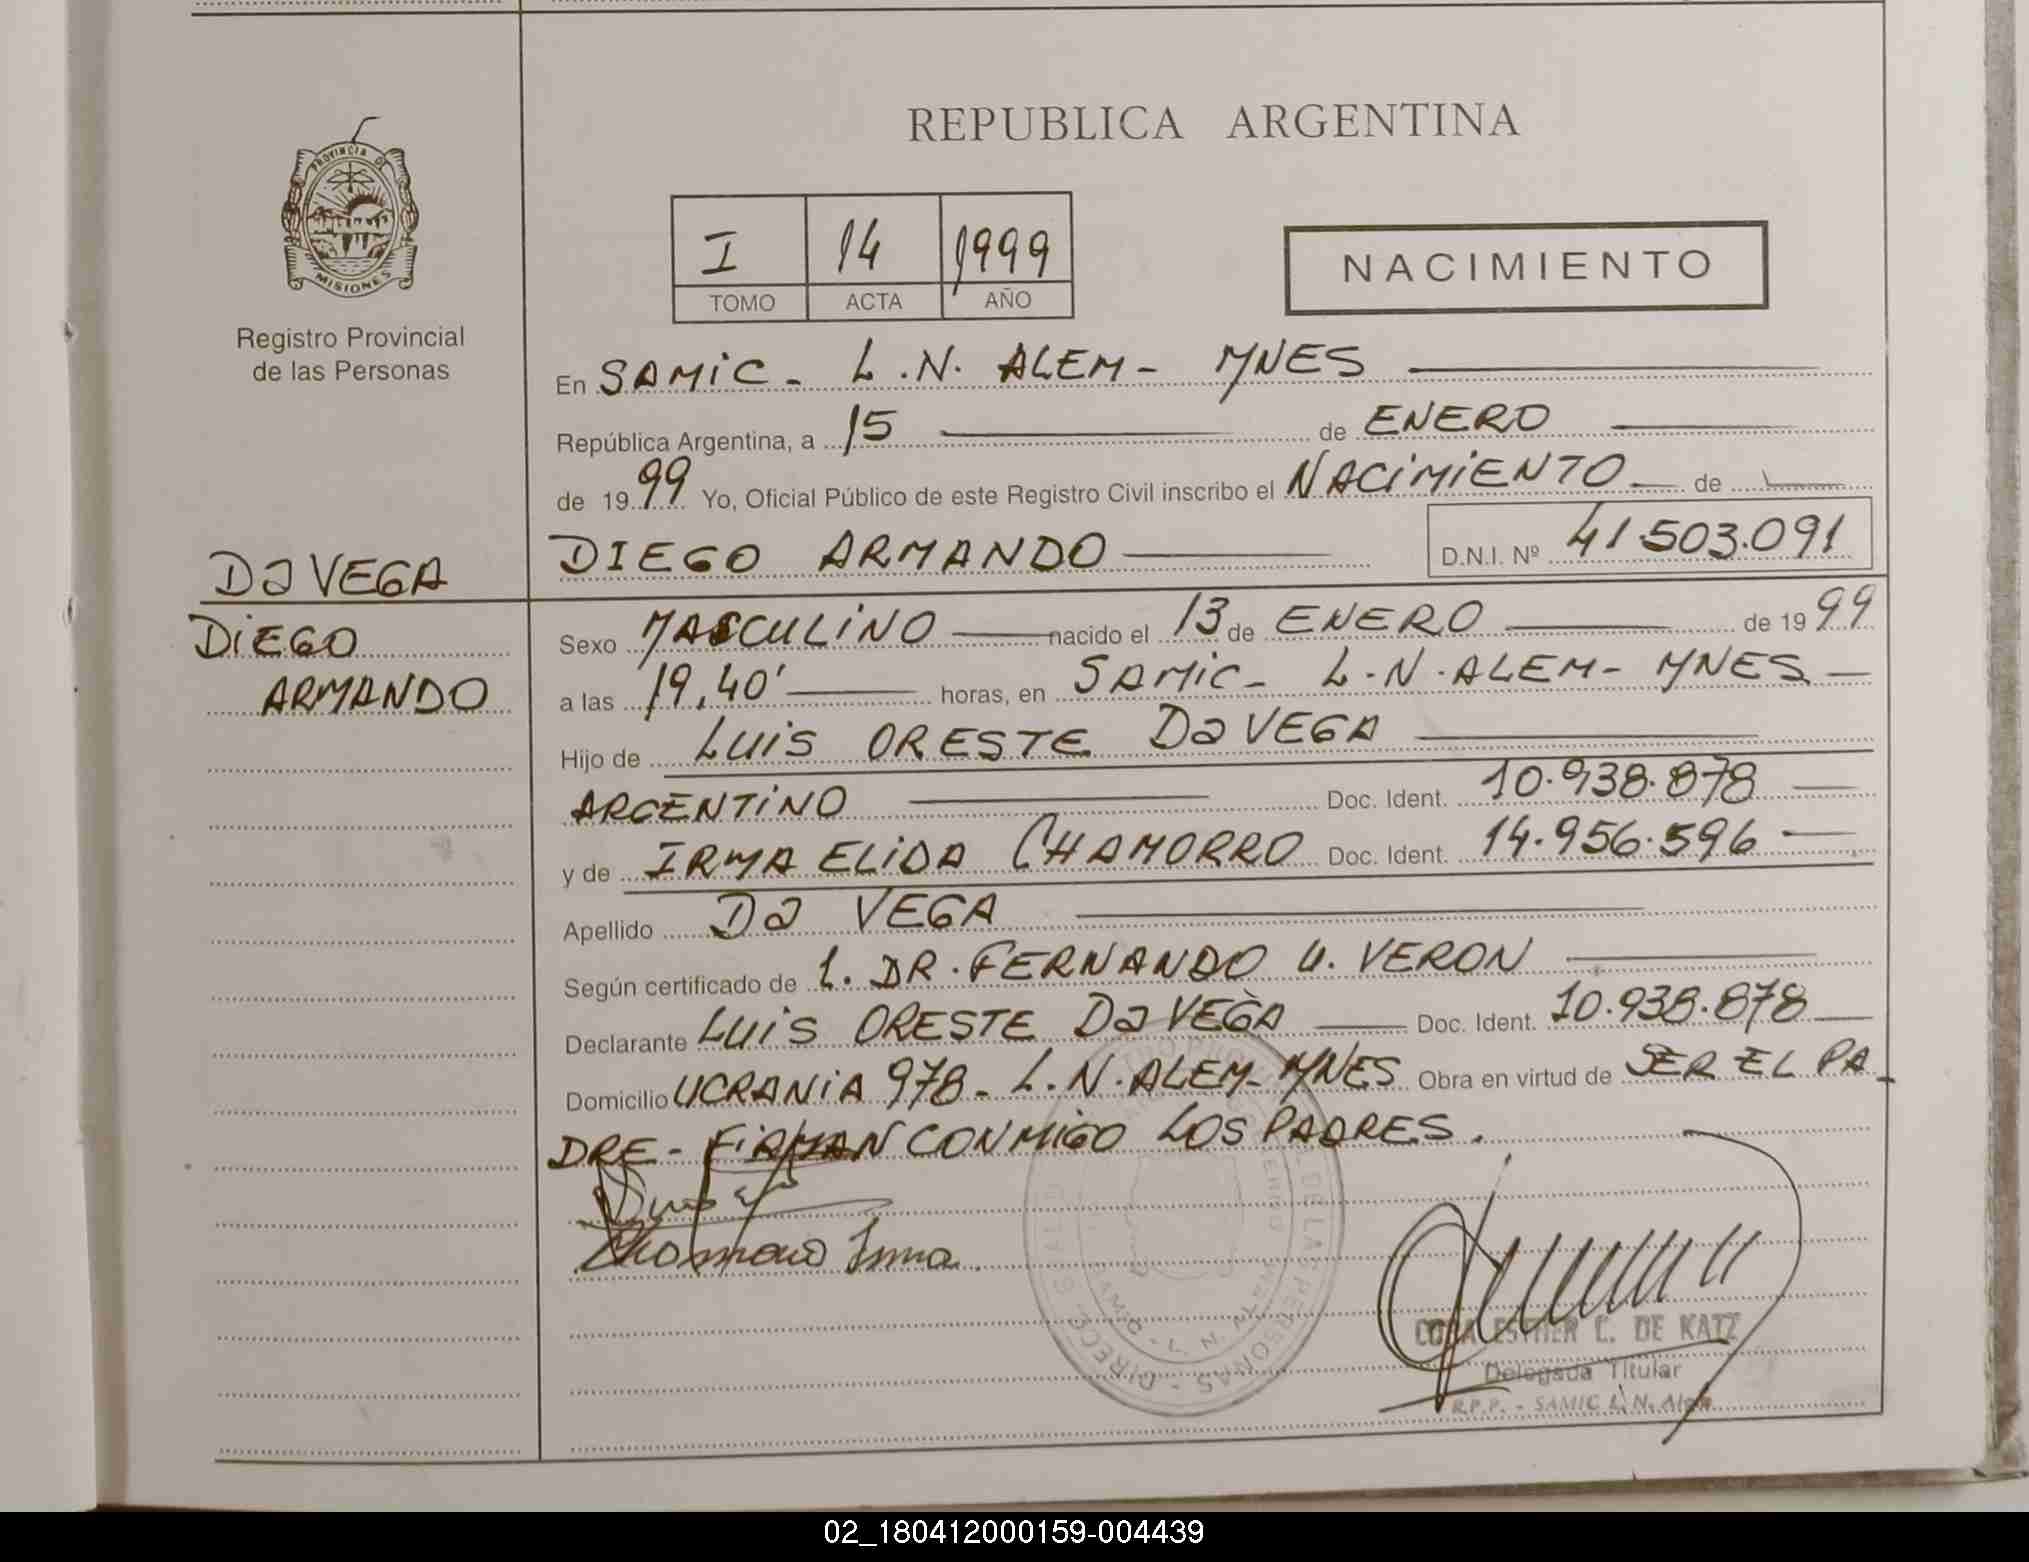 REPUBLICA ARGENTINA
PROVINCIA DE
MISIONES
Registro Provincial
de las Personas
I 14 1999
TOMO ACTA AÑO
NACIMIENTO
En SAMIC - L.N. ALEM - MNES
República Argentina, a 15 de ENERO
de 1999 Yo, Oficial Público de este Registro Civil inscribo el NACIMIENTO de
DIEGO ARMANDO D.N.I. Nº 41.503.091
Da VEGA
DIEGO
ARMANDO
Sexo MASCULINO nacido el 13 de ENERO de 1999
a las 19,40' horas, en SAMIC - L.N. ALEM - MNES
Hijo de LUIS ORESTE Da VEGA
ARGENTINO Doc. Ident. 10.938.878
y de IRMA ELIDA CHAMORRO Doc. Ident. 14.956.596
Apellido Da VEGA
Según certificado de L. DR. FERNANDO U. VERON
Declarante LUIS ORESTE Da VEGA Doc. Ident. 10.938.878
Domicilio UCRANIA 978 - L.N. ALEM - MNES Obra en virtud de SER EL PA-
DRE - FIRMAN CONMIGO LOS PADRES.
Chamorro Irma.
DE LAS PERSONAS
SAMIC - L. N. ALEM
CORA ESTHER C. DE KATZ
Delegada Titular
R.P.P. - SAMIC L. N. Alem
02_180412000159-004439